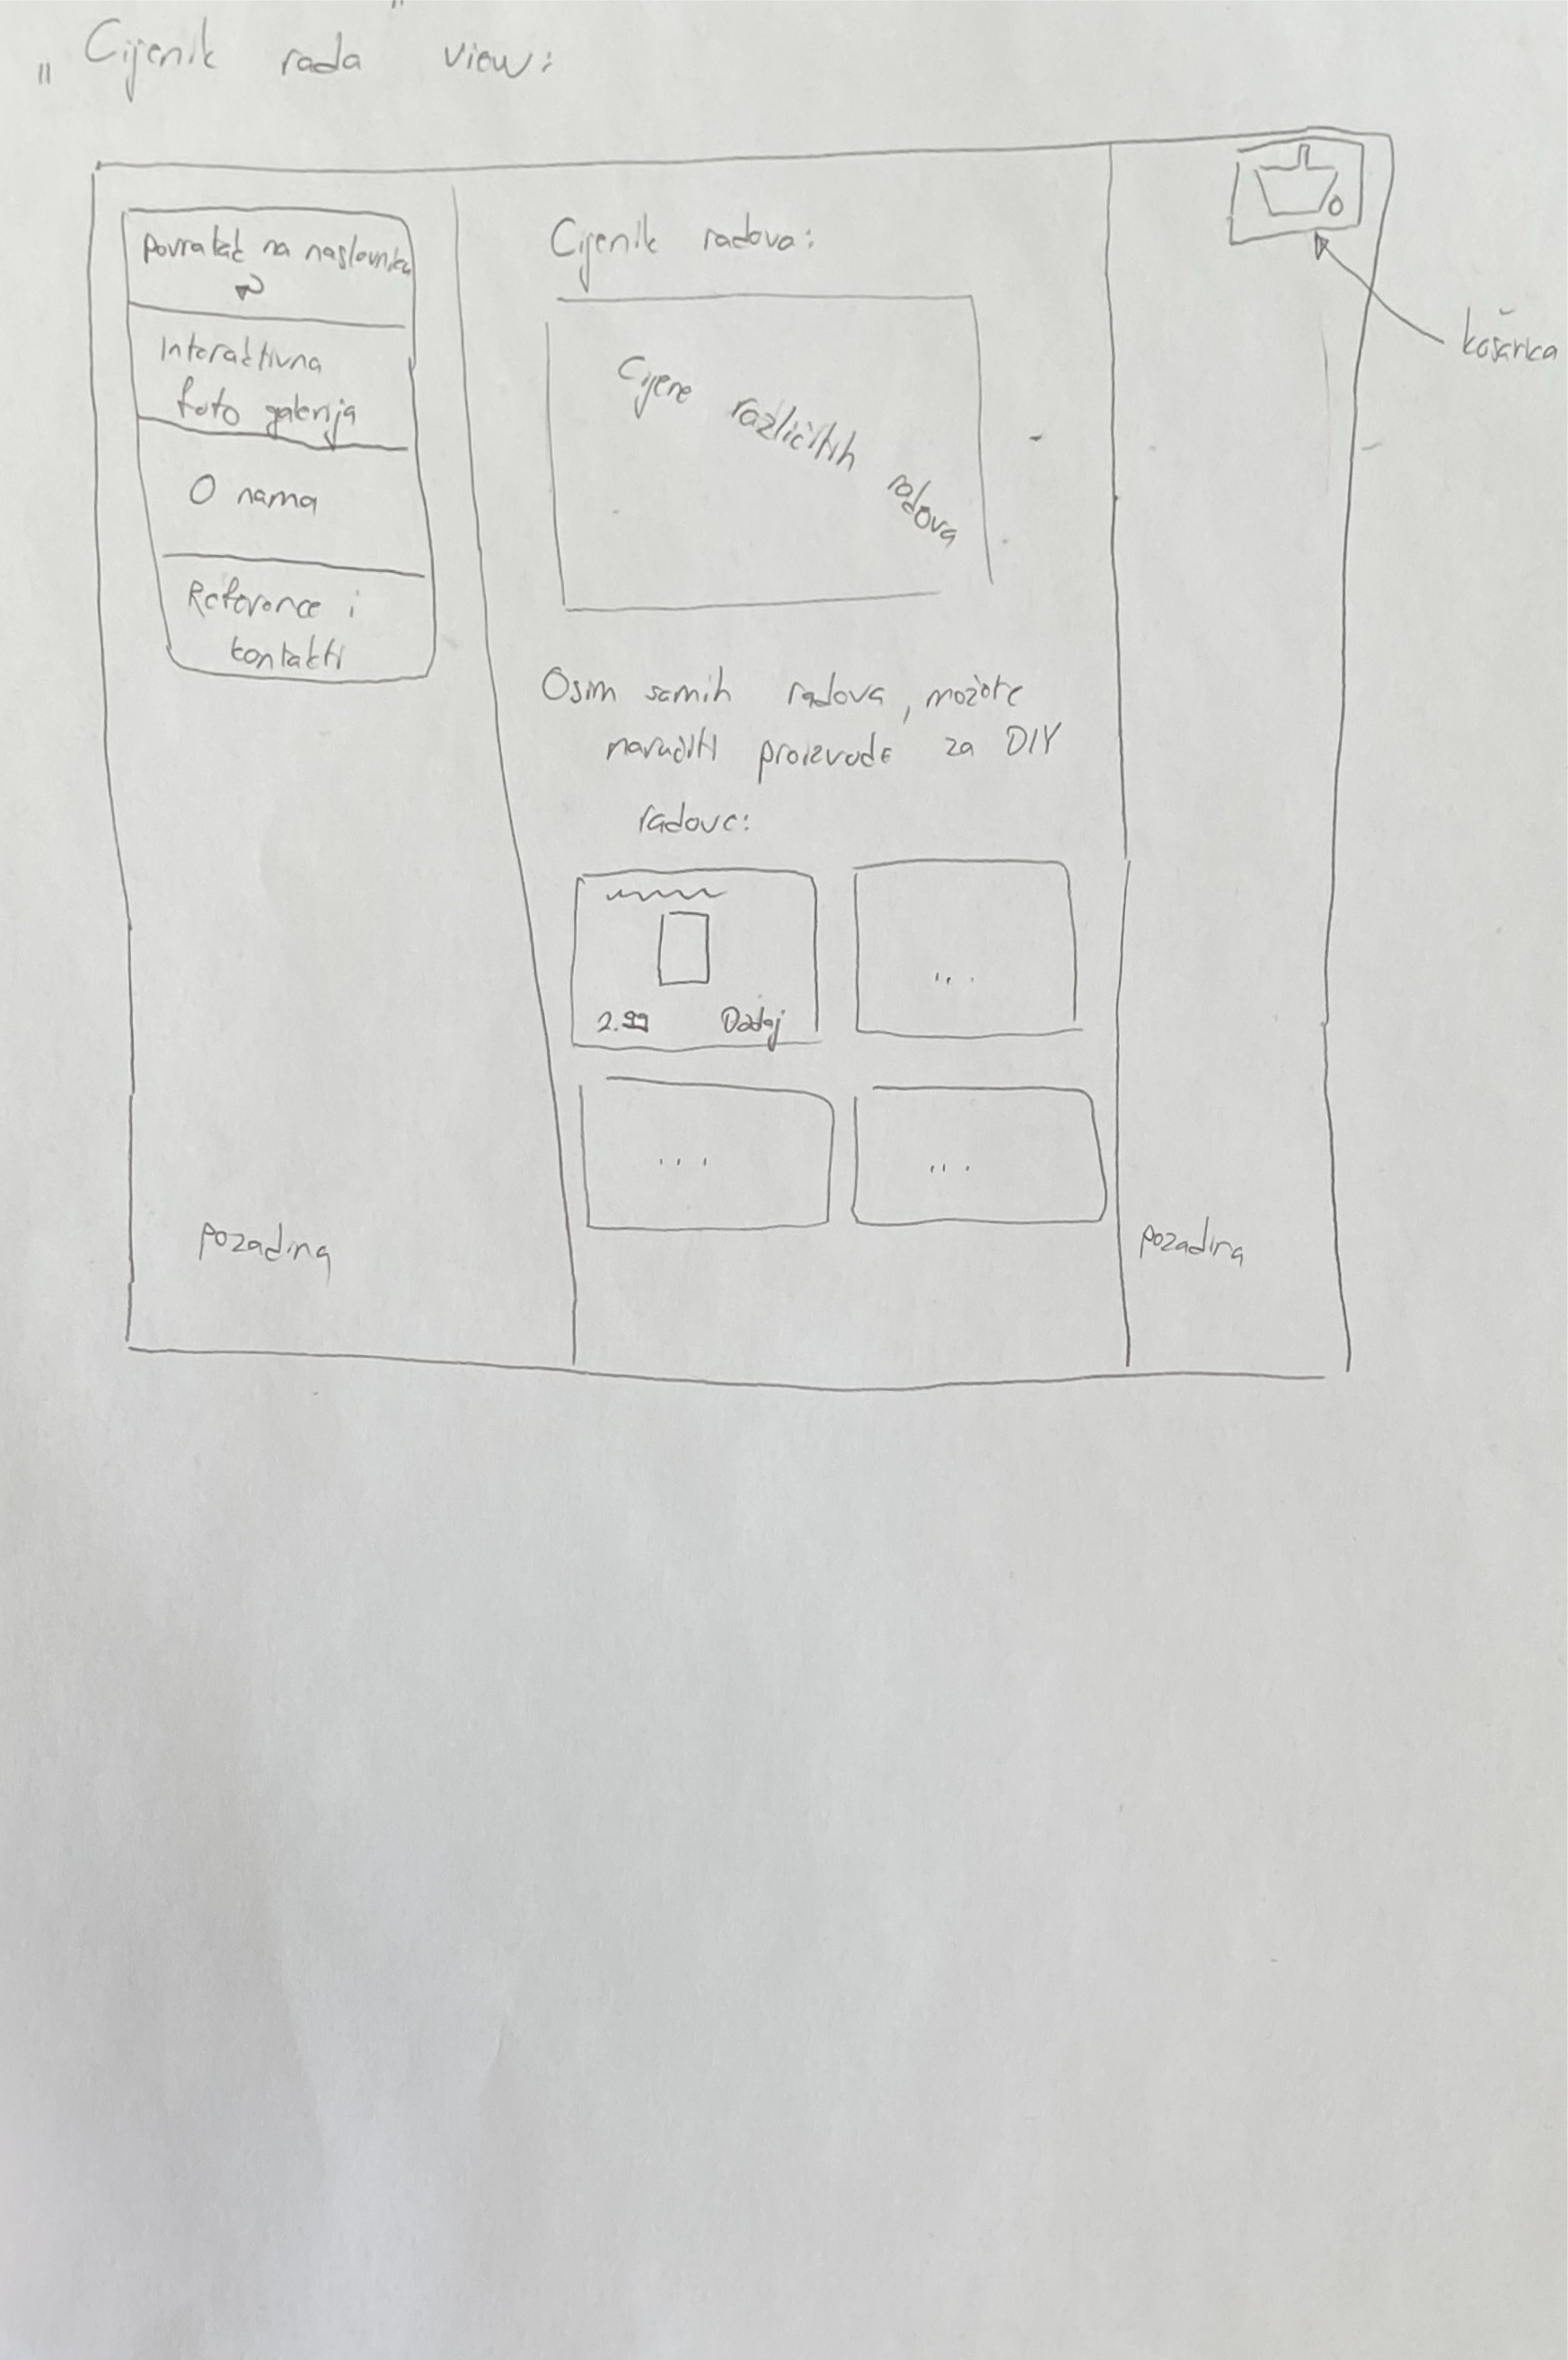 „Cijenik rada" view:
Povratak na naslovnicu
Interaktivna
foto galerija
O nama
Reference i
kontakti
pozadina
Cijenik radova:
Cijene različitih radova
Osim samih radova, možete
naručiti proizvode za DIY
radove:
2.99 Dodaj
...
...
...
pozadina
košarica